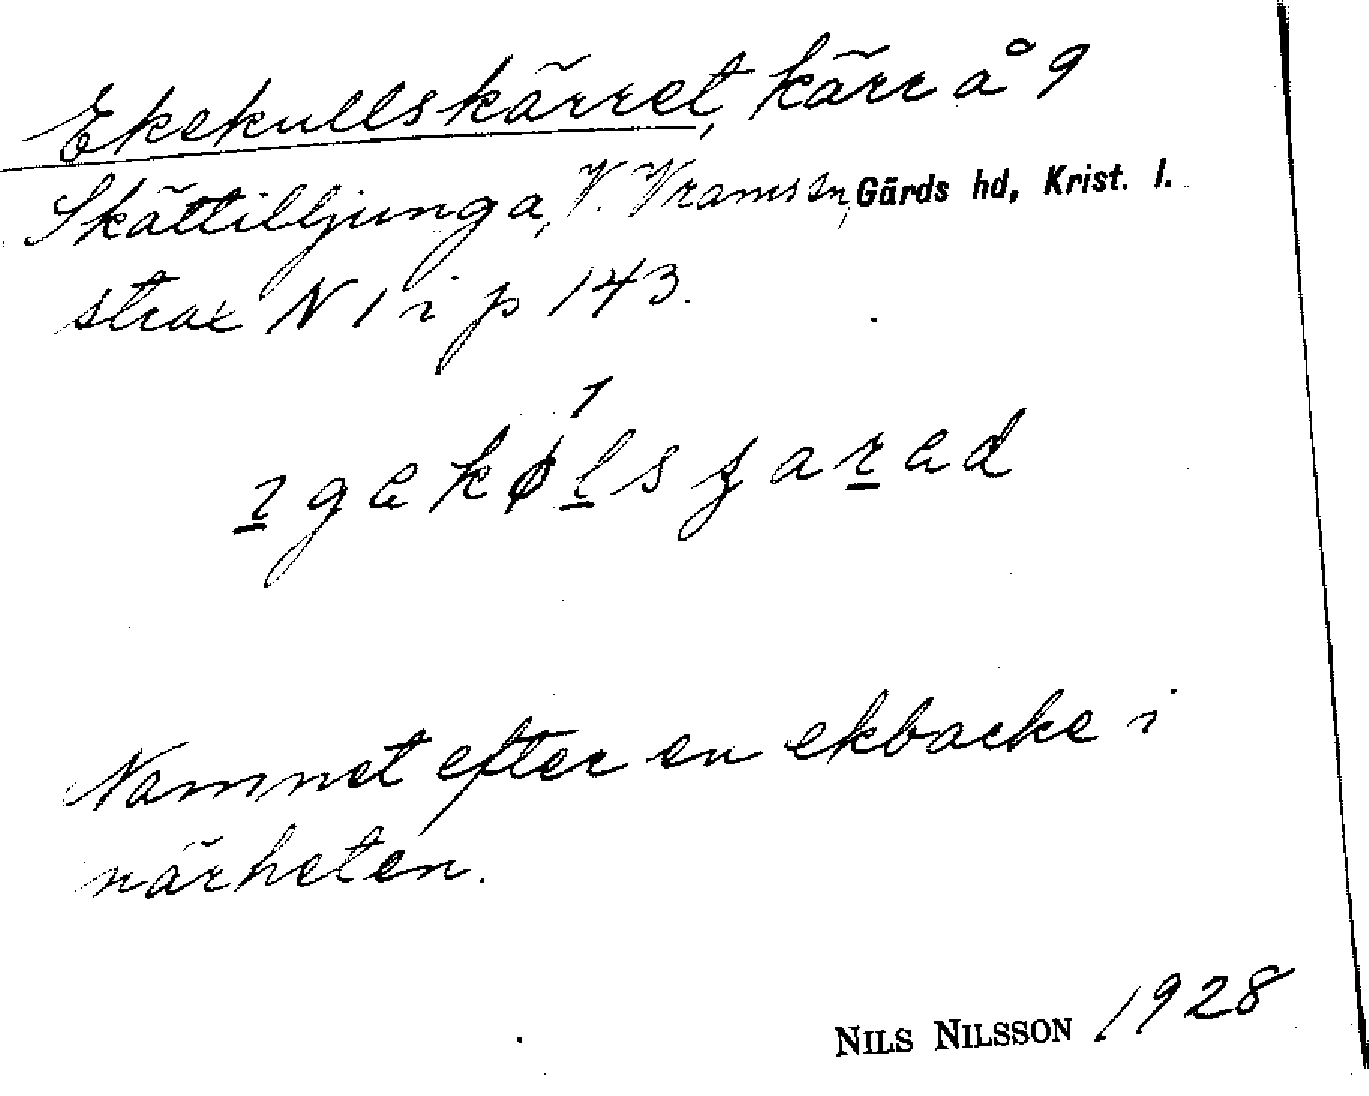 Ekekullskärret, kärr å 9
Skättilljunga, V. Vram sn, Gärds hd, Krist. l.
strax N 1 i p 143.
Namnet efter en ekbacke i
närheten.
NILS NILSSON 1928